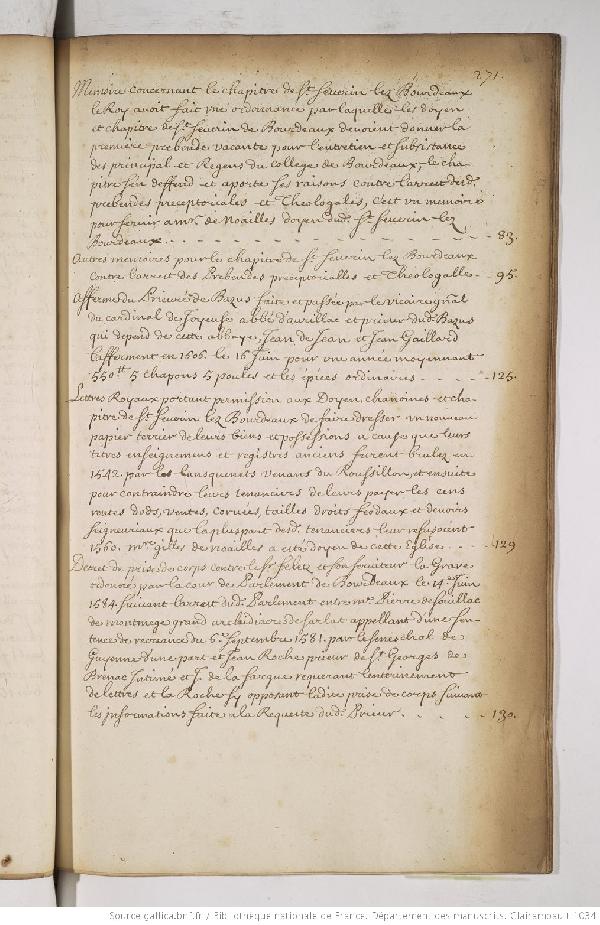 271.
Memoire concernant le chapitre de St. Severin lez Bourdeaux
le Roy avoit fait vne ordonnance par laquelle les doyen
et chapitre de St. Severin de Bourdeaux devoient donner la
premiere prebende vacante pour l'entretien et subsistance
des principal et Regens du College de Bourdeaux, le cha-
pitre s'en deffend et aporte ses raisons contre l'arrest desd.
prebendes preceptoriales et Theologales, C'est vn memoire
pour servir a mr. de Noailles doyen dud. St. Severin lez
Bourdeaux. . . . 83.
Autres memoires pour le chapitre de St. Severin lez Bourdeaux
contre l'arrest des Prebendes preceptorialles et Theologalles - 95.
Afferme du Prieuré de Bazus faite et passée par le vicaire gnal
du cardinal de Joyeuse abbé d'aurillac et prieur dud. Bazus
qui depend de cette abbaye, Jean de Jean et Jean Gaillard
l'afferment en 1606. le 16 Juin pour vne année moyennant
550tt 5 chapons 5 poules et les épices ordinaires . . . . 125.
Lettres Royaux portant permission aux Doyen chanoines et cha-
pitre de St Severin lez Bourdeaux de faire dresser vn nouveau
papier terrier de leurs biens et possessions a cause que leurs
titres enseignemens et registres anciens furent brulez en
1542. par les lansquenets venans du Roussillon, et ensuite
pour contraindre leurs tenanciers de leurs payer les cens
rentes dods, ventes, corvées, tailles droits feodaux et devoirs
seigneuriaux que la pluspart desd. tenanciers leur refusoient
1560. mre. gilles de Noailles a eté doyen de cette Eglise . . . 129
Decret de prise de corps contre le sr. feletz et son serviteur la Grave
ordonné par la cour de Parlement de Bourdeaux le 14. Juin
1584. suivant l'arrest dud. Parlement entre mre. Pierre de souillac
de montmege grand archidiacre de sarlat appellant d'une sen-
tence de recreance du 6e. Septembre 1581. par le seneschal de
Guyenne d'une part et Jean Roche prieur de St. Georges de
Brenac Intimé et J. de la farque requerant l'entérinement
de lettres et la Roche s'y opposant ladite prise de corps suivant
les informations faite a la Requeste dud. Prieur. . . . 130.
Source gallica.bnf.fr / Bibliothèque nationale de France. Département des manuscrits. Clairambault 1034